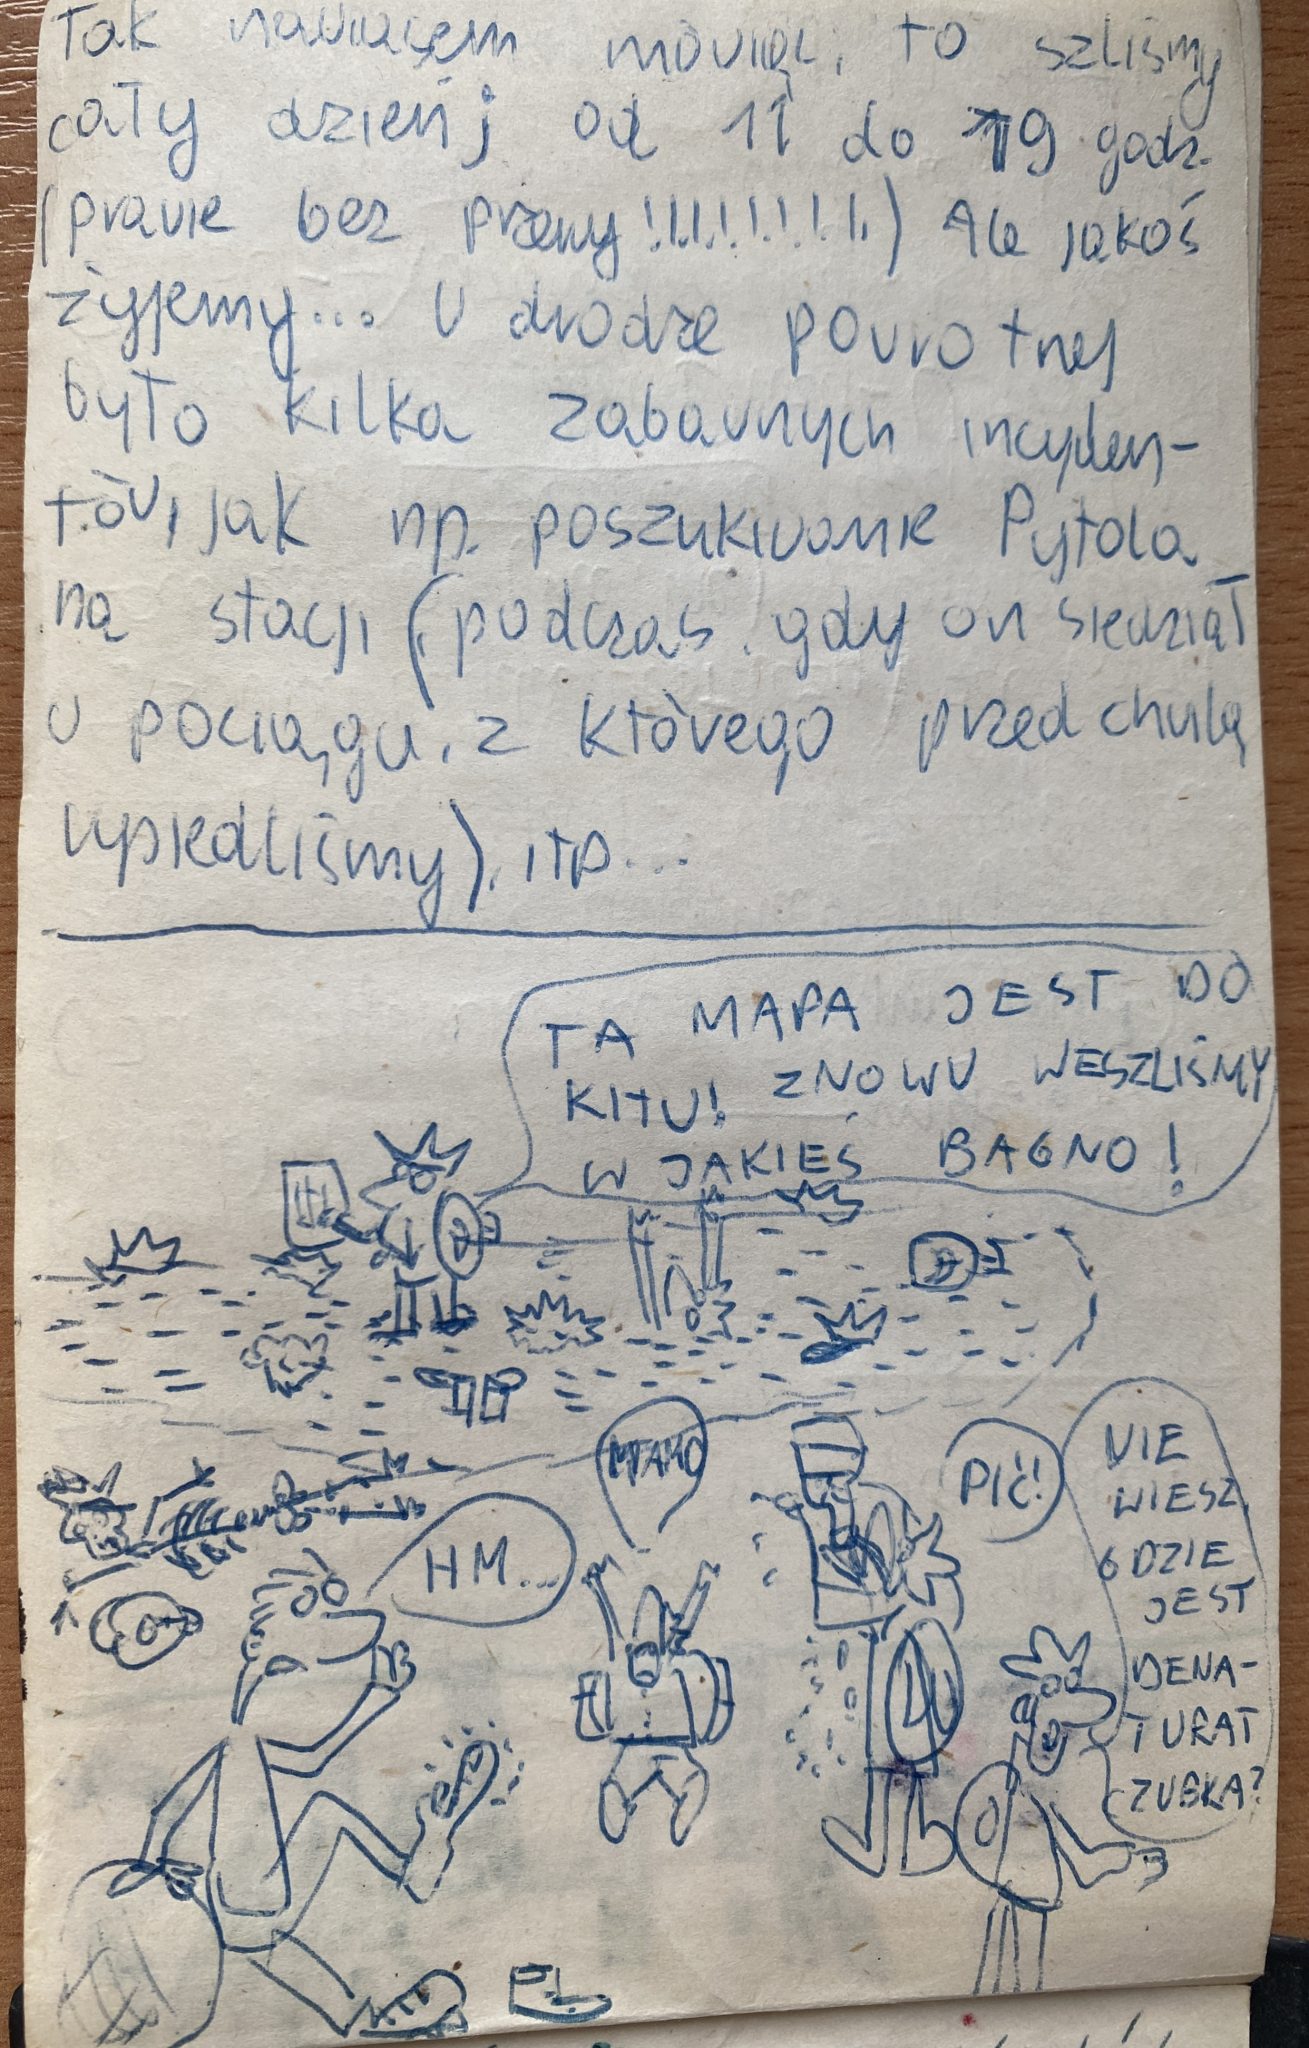 Tak nawiasem mówiąc, to szliśmy
cały dzień; od 11 do 19 godz.
(prawie bez przerwy!!!!!!!!!) Ale jakoś
żyjemy... W drodze powrotnej
było kilka zabawnych incyden-
tów, jak np. poszukiwanie Pytola
na stacji (podczas, gdy on siedział
w pociągu, z którego przed chwilą
wysiedliśmy), itp...
TA MAPA JEST DO
KITU! ZNOWU WESZLIŚMY
W JAKIEŚ BAGNO!
HM...
PIĆ!
NIE
WIESZ,
GDZIE
JEST
DENA-
TURAT
ZUBKA?